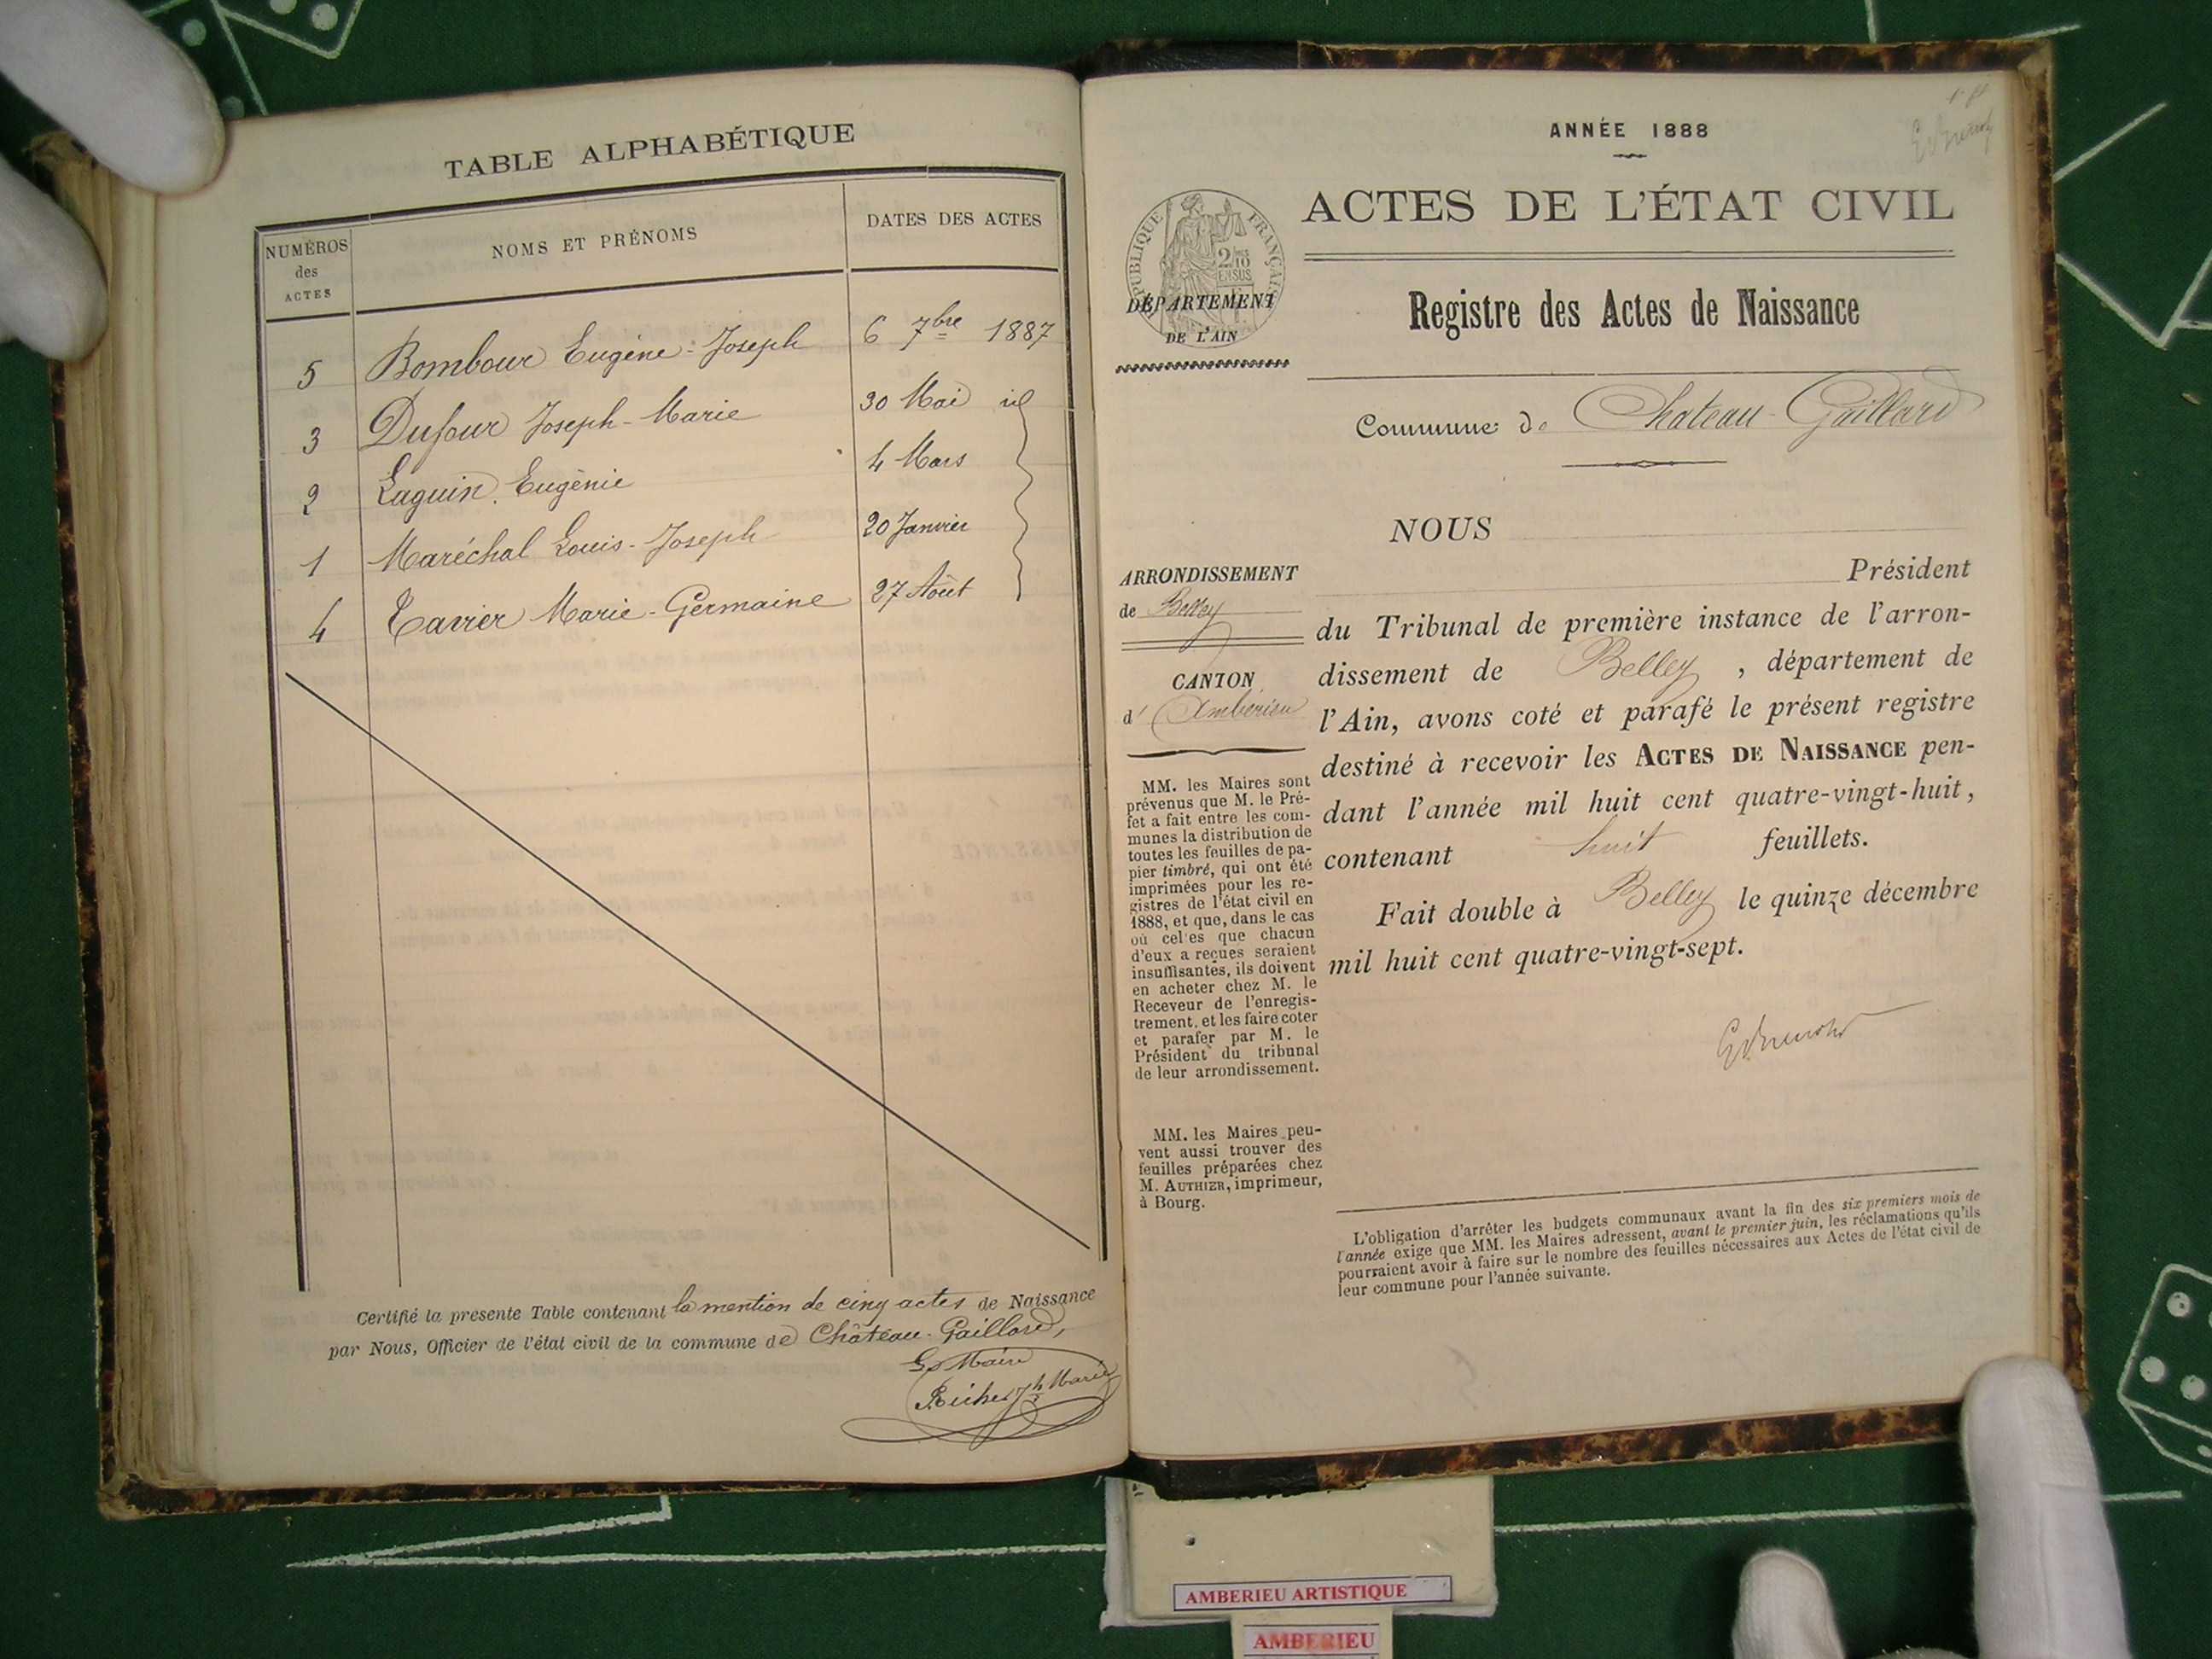 TABLE ALPHABÉTIQUE
NUMÉROS des ACTES NOMS ET PRÉNOMS DATES DES ACTES
5 Bombour Eugène-Joseph 6 7bre 1887
3 Dufour Joseph-Marie 30 Mai id
2 Laguin Eugénie 4 Mars
1 Maréchal Louis-Joseph 20 Janvier
4 Tavier Marie-Germaine 27 Août
Certifié la presente Table contenant la mention de cinq actes de Naissance
par Nous, Officier de l'état civil de la commune de Château-Gaillard,
Le Maire
ANNÉE 1888
ACTES DE L'ÉTAT CIVIL
RÉPUBLIQUE FRANÇAISE
2/10 EN SUS
DÉPARTEMENT
DE L'AIN
Registre des Actes de Naissance
Commune de Chateau-Gaillard
ARRONDISSEMENT
de Belley
CANTON
d' Ambérieu
MM. les Maires sont
prévenus que M. le Pré-
fet a fait entre les com-
munes la distribution de
toutes les feuilles de pa-
pier timbré, qui ont été
imprimées pour les re-
gistres de l'état civil en
1888, et que, dans le cas
où celles que chacun
d'eux a reçues seraient
insuffisantes, ils doivent
en acheter chez M. le
Receveur de l'enregis-
trement, et les faire coter
et parafer par M. le
Président du tribunal
de leur arrondissement.
MM. les Maires peu-
vent aussi trouver des
feuilles préparées chez
M. AUTHIER, imprimeur,
à Bourg.
NOUS
Président
du Tribunal de première instance de l'arron-
dissement de Belley, département de
l'Ain, avons coté et parafé le présent registre
destiné à recevoir les ACTES DE NAISSANCE pen-
dant l'année mil huit cent quatre-vingt-huit,
contenant huit feuillets.
Fait double à Belley le quinze décembre
mil huit cent quatre-vingt-sept.
L'obligation d'arrêter les budgets communaux avant la fin des six premiers mois de
l'année exige que MM. les Maires adressent, avant le premier juin, les réclamations qu'ils
pourraient avoir à faire sur le nombre des feuilles nécessaires aux Actes de l'état civil de
leur commune pour l'année suivante.
AMBERIEU ARTISTIQUE
AMBERIEU